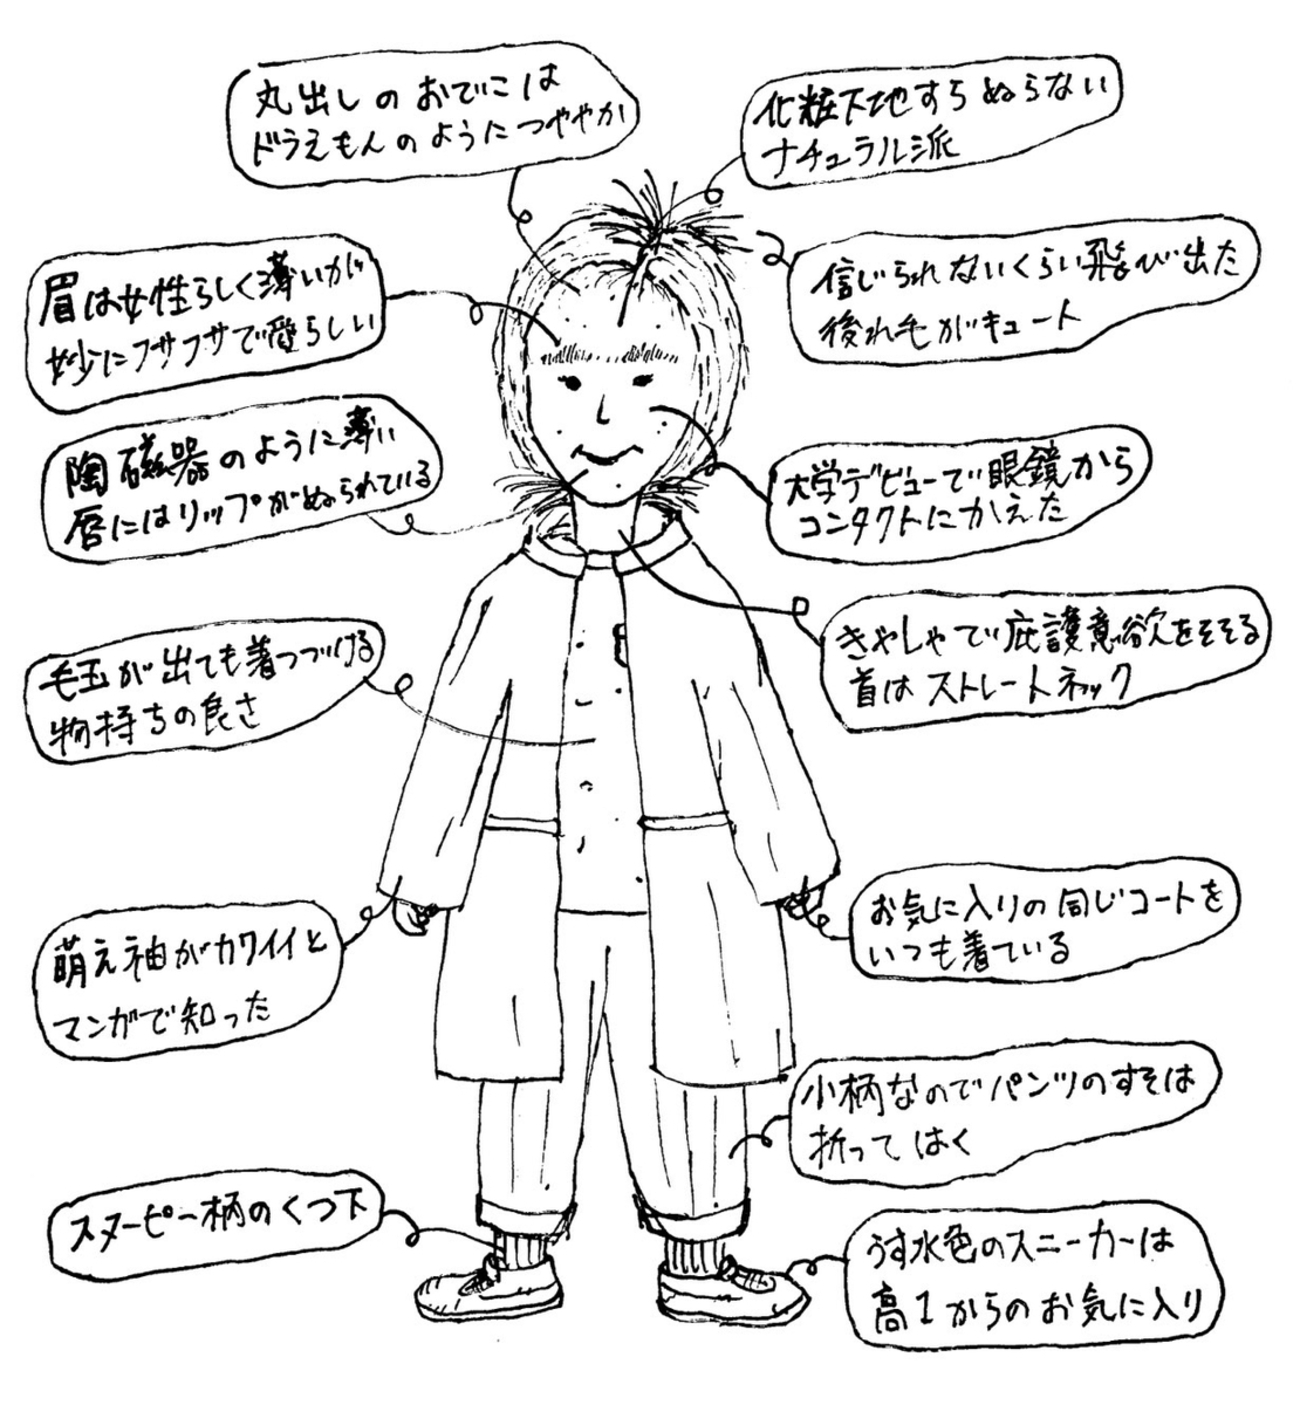 丸出しのおでこは
ドラえもんのようにつややか
化粧下地すらぬらない
ナチュラル派
眉は女性らしく薄いが
妙にフサフサで愛らしい
信じられないくらい飛び出た
後れ毛がキュート
陶磁器のように薄い
唇にはリップがぬられている
大学デビューで眼鏡から
コンタクトにかえた
毛玉が出ても着つづける
物持ちの良さ
きゃしゃで庇護意欲をそそる
首はストレートネック
萌え袖がカワイイと
マンガで知った
お気に入りの同じコートを
いつも着ている
小柄なのでパンツのすそは
折ってはく
スヌーピー柄のくつ下
うす水色のスニーカーは
高1からのお気に入り